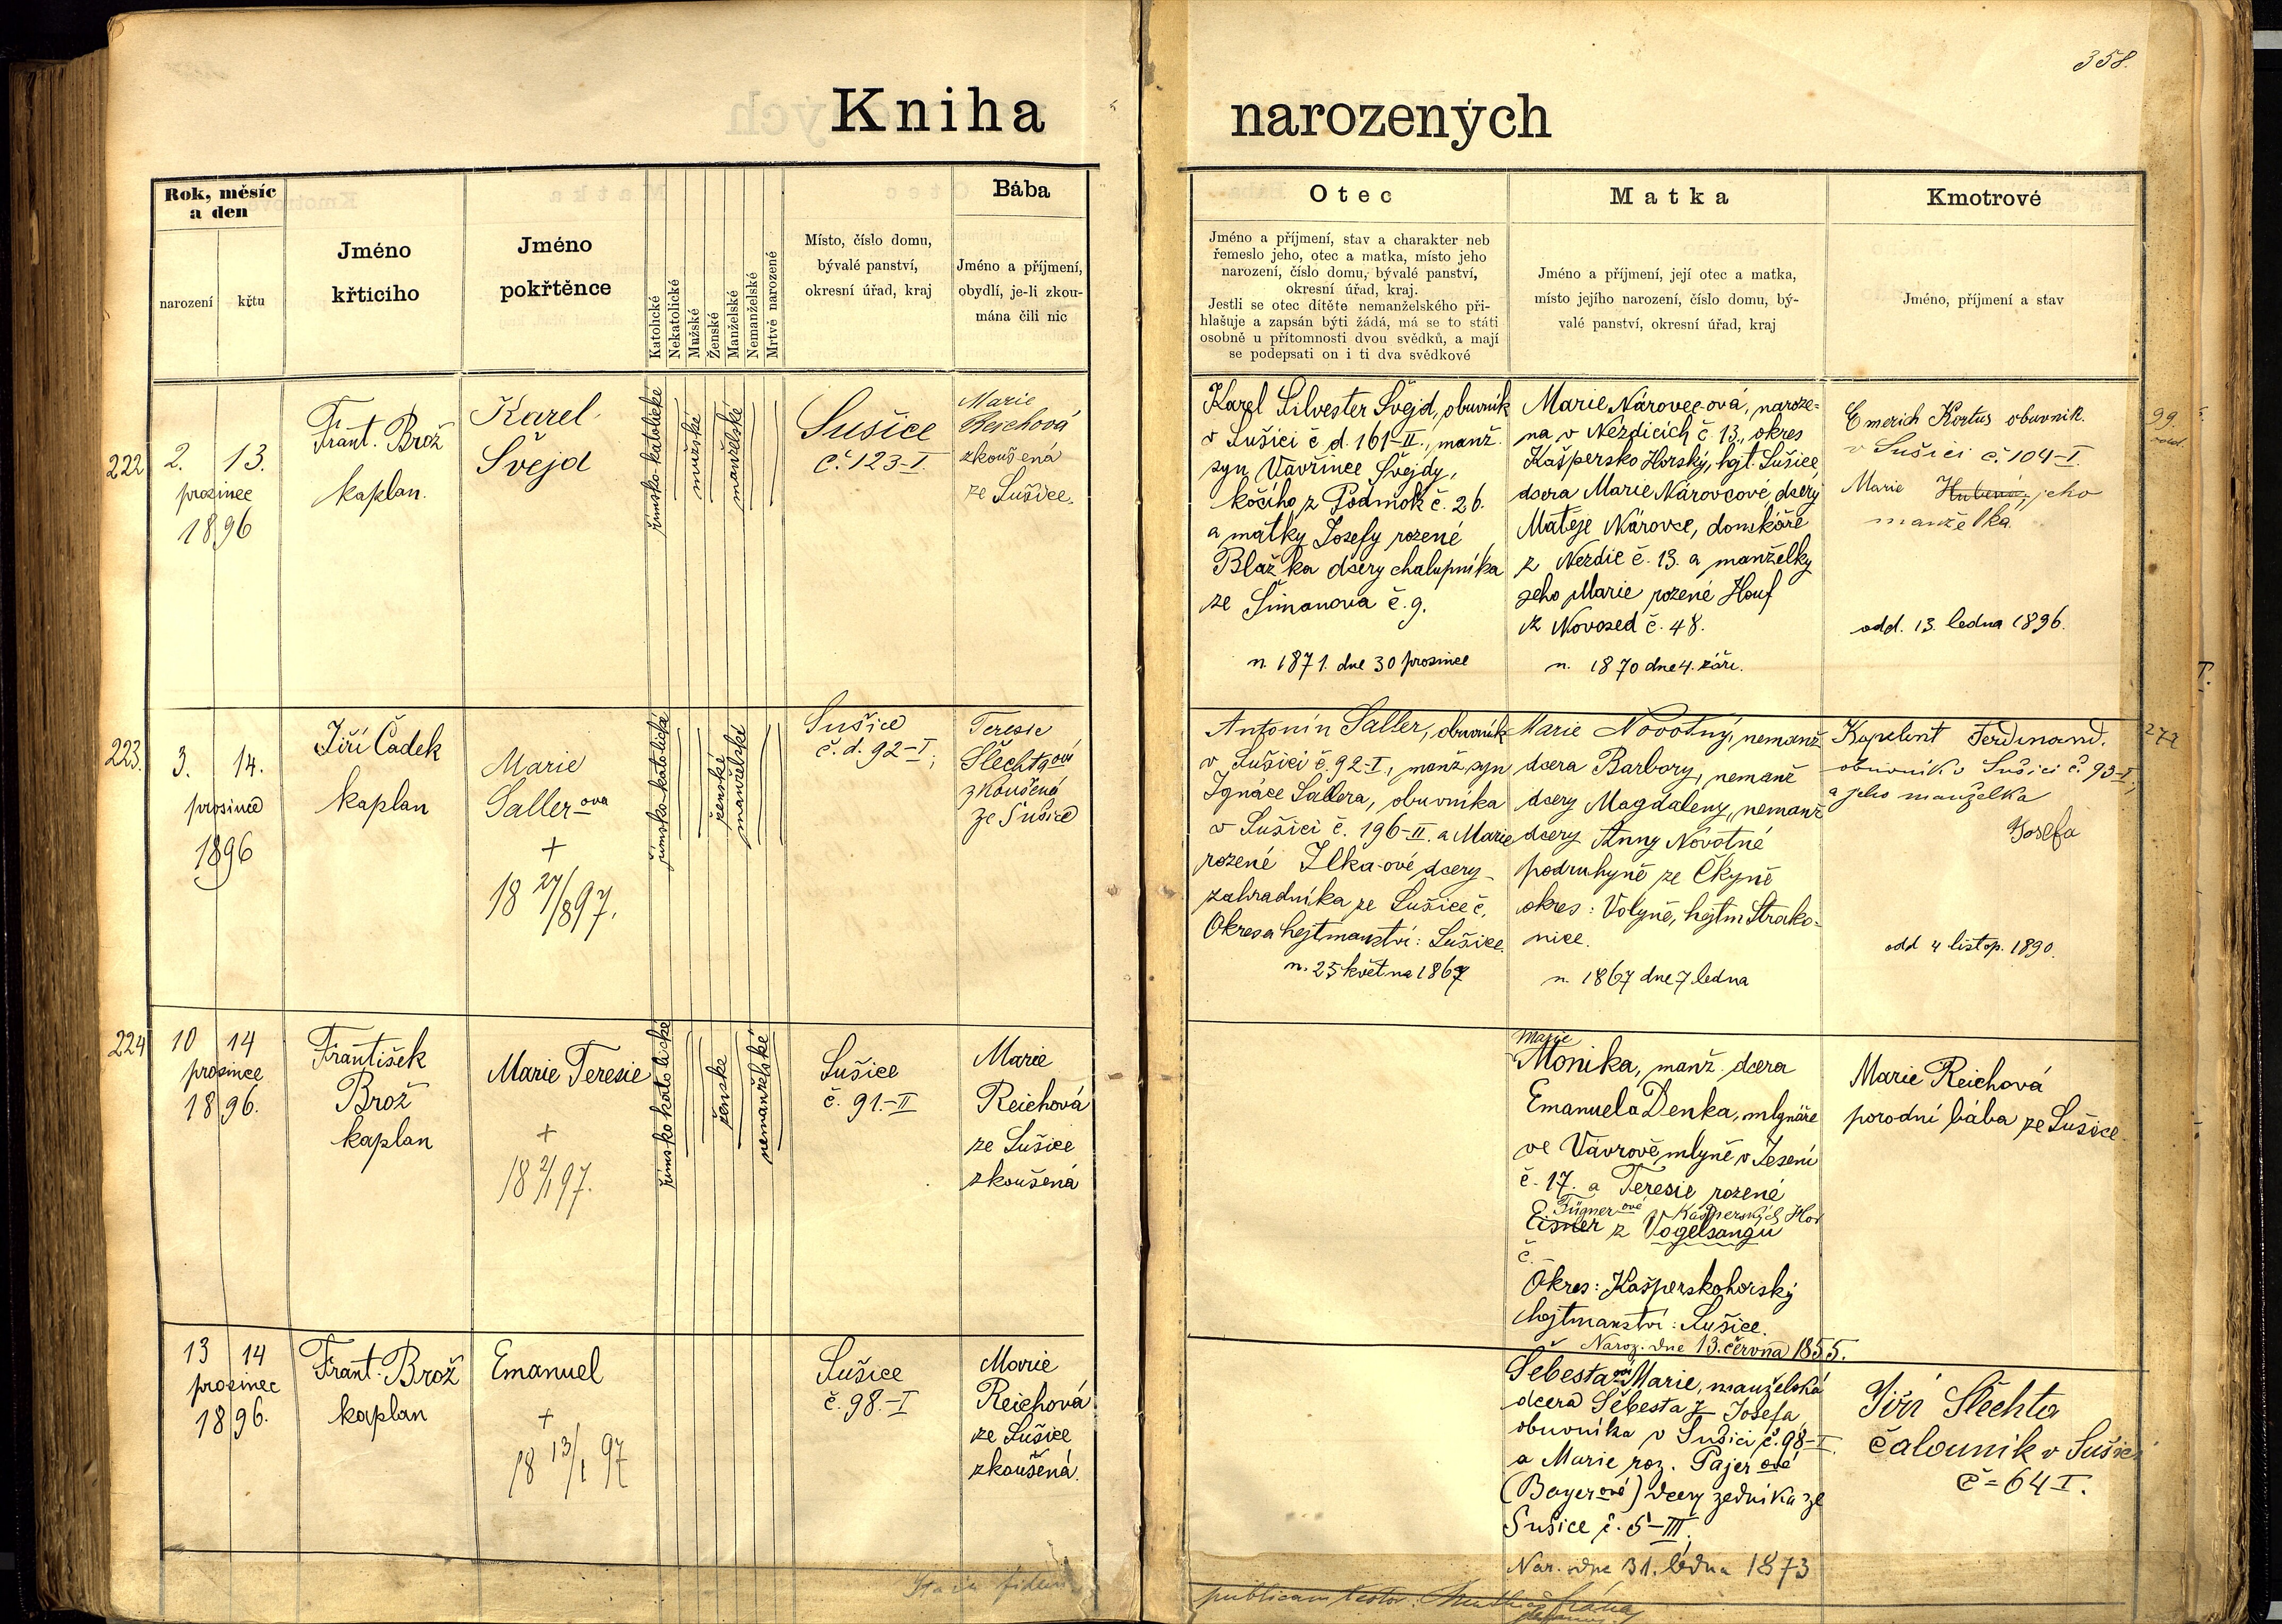 358.
Kniha narozených
Rok, měsíc a den
narození
křtu
Jméno
křticího
Jméno
pokřtěnce
Katolické
Nekatolické
Mužské
Ženské
Manželské
Nemanželské
Mrtvě narozené
Místo, číslo domu,
bývalé panství,
okresní úřad, kraj
Bába
Jméno a příjmení,
obydlí, je-li zkou-
mána čili nic
Otec
Jméno a příjmení, stav a charakter neb
řemeslo jeho, otec a matka, místo jeho
narození, číslo domu, bývalé panství,
okresní úřad, kraj.
Jestli se otec dítěte nemanželského při-
hlašuje a zapsán býti žádá, má se to státi
osobně u přítomnosti dvou svědků, a mají
se podepsati on i ti dva svědkové
Matka
Jméno a příjmení, její otec a matka,
místo jejího narození, číslo domu, bý-
valé panství, okresní úřad, kraj
Kmotrové
Jméno, příjmení a stav
222
2. 13.
prosinec
1896
Frant. Brož
kaplan.
Karel
Švejd
římsko-katolické
mužské
manželské
Sušice
č. 123-I.
Marie
Reichová
zkoušená
ze Sušice.
Karel Silvester Švejd, obuvník
v Sušici č d. 161-II., manž.
syn Vavřince Švejdy,
kočího z Podmok č. 26.
a matky Josefy rozené
Blažka dcery chalupníka
ze Šimanova č. 9.
n. 1871. dne 30 prosince
Marie Nárovec-ová, naroze-
na v Nezdicích č. 13., okres
Kašpersko Horský, hejt. Sušice,
dcera Marie Nárovcové, dcery
Matěje Nárovce, domkáře
z Nezdic č. 13. a manželky
jeho Marie rozené Houf
z Novosed č. 48.
n. 1870 dne 4. září.
Emerich Kortus obuvník.
v Sušici č. 104-I.
Marie Hubená, jeho
manželka.
odd. 13. ledna 1896.
99.
odd.
223.
3. 14.
prosince
1896
Jiří Čadek
kaplan
Marie
Saller-ova
+
18 27/8 97.
římsko-katolická
ženské
manželské
Sušice
č. d. 92-I;
Teresie
Šlechtová
zkoušená
ze Sušice
Antonín Saller, obuvník
v Sušici č. 92-I., manž. syn
Ignáce Sallera, obuvníka
v Sušici č. 196-II. a Marie
rozené Jlka-ové dcery
zahradníka ze Sušice č.
Okres a hejtmanství: Sušice.
n. 25 května 1867
Marie Novotný, nemanž.
dcera Barbory, nemanž
dcery Magdaleny, nemanž
dcery Anny Novotné
podruhyně ze Čkyně
okres: Volyně, hejtm Strako-
nice.
n. 1867 dne 7 ledna
Kapelint Ferdinand.
obuvník v Sušici č. 93-I,
a jeho manželka
Josefa
odd 4 listop. 1890.
I.
224
10 14
prosince
1896.
František
Brož
kaplan
Marie Teresie
+
18 2/1 97.
římsko katolické
ženske
nemanželské
Sušice
č. 91.-II
Marie
Reichová
ze Sušice
zkoušená
Marie
Monika, manž. dcera
Emanuela Denka, mlynáře
ve Vávrově mlyně v Jesení
č. 17. a Teresie rozené
Fügner ové z Kašperských Hor
Eisner z Vogelsangu
č.
Okres: Kašperskohorský
hejtmanství: Sušice.
Naroz. dne 13. června 1855.
Marie Reichová
porodní bába ze Sušice.
13 14
prosinec
1896.
Frant. Brož
kaplan
Emanuel
+
18 13/1 97
Sušice
č. 98.-I
Marie
Reichová
ze Sušice
zkoušená.
Šebesta ová Marie, manželská
dcera Šebesta Josefa
obuvníka v Sušici č. 98-I.
a Marie roz. Pajer ové
(Bayer ové) dcery zedníka ze
Sušice č. 5-III.
Nar. dne 31. ledna 1873
Jiří Šlechta
čalouník v Sušici
č = 64 I.
publicam testor.